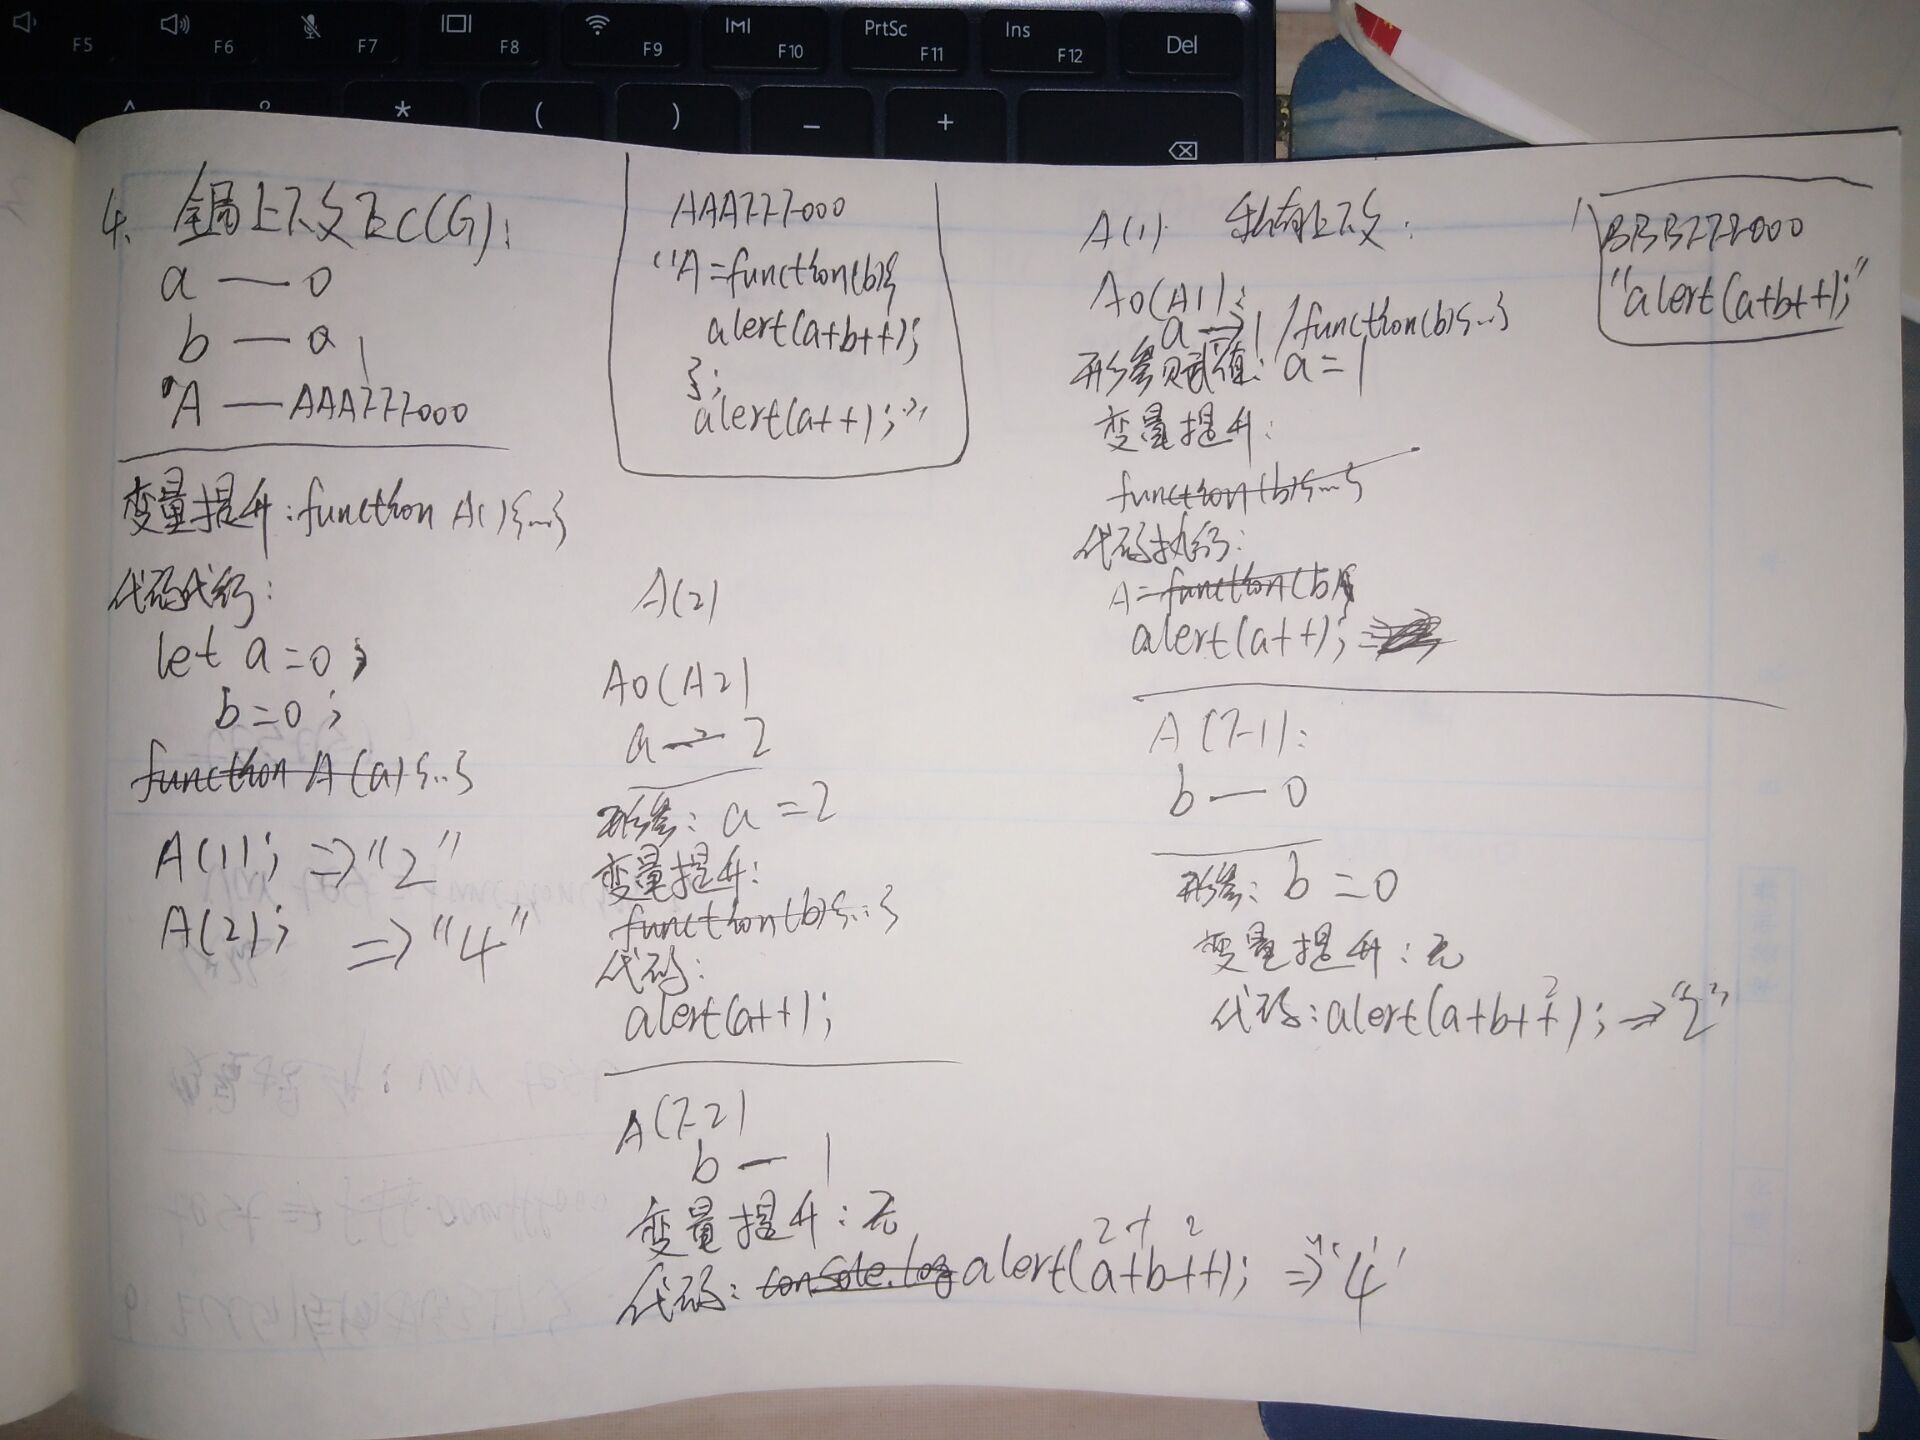 F5
F6
F7
F8
F9
F10
PrtSc
F11
Ins
F12
Del
*
(
)
_
+
4. 全局上下文EC(G):
a — 0
b — 0 1
A — AAA777000
变量提升:function A(){...}
代码执行:
let a=0;
b=0;
function A(a){...}
A(1); =>"2"
A(2); =>"4"
AAA777000
"A=function(b){
alert(a+b++);
};
alert(a++);"
A(2)
AO(A2)
a — 2
形参: a=2
变量提升:
function(b){...}
代码:
alert(a++);
A(7-2)
b — 1
变量提升:无
2+2
代码: console.log alert(a+b++); =>"4"
A(1) 私有上下文:
AO(A1):
a → 1 /function(b){...}
形参赋值: a=1
变量提升:
function(b){...}
代码执行:
A=function(b){
alert(a++); =>
A(7-1):
b — 0
形参: b=0
变量提升:无
代码:alert(a+b++); =>"2"
BBB777000
"alert(a+b++);"